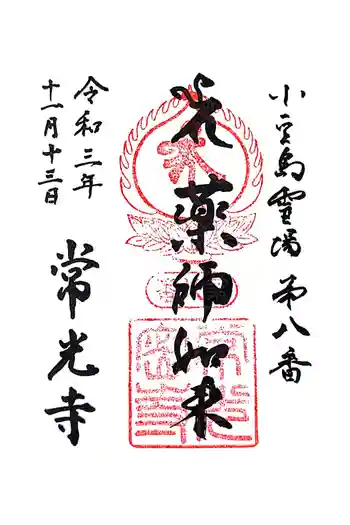 小豆島霊場第八番
薬師如来
令和三年
十一月十三日
常光寺